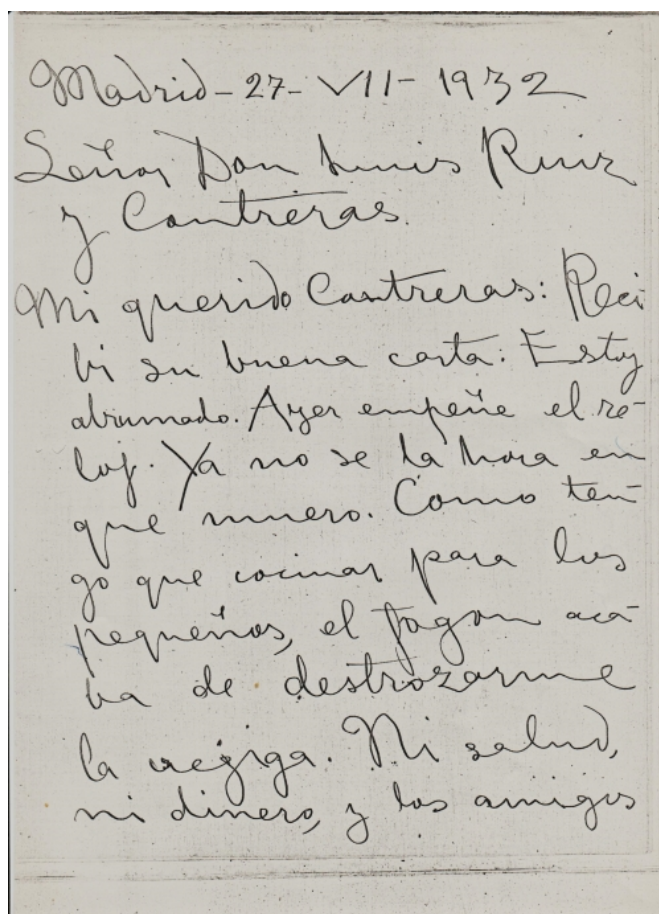 Madrid-27-VII-1932
Señor Don Luis Ruiz
y Contreras.
Mi querido Contreras: Reci
bi su buena carta. Estoy
abrumado. Ayer empeñe el re-
loj. Ya no se la hora en
que muero. Como ten-
go que cocinar para los
pequeños, el fogon aca-
ba de destrozarme
la vejiga. Ni salud,
ni dinero, y los amigos